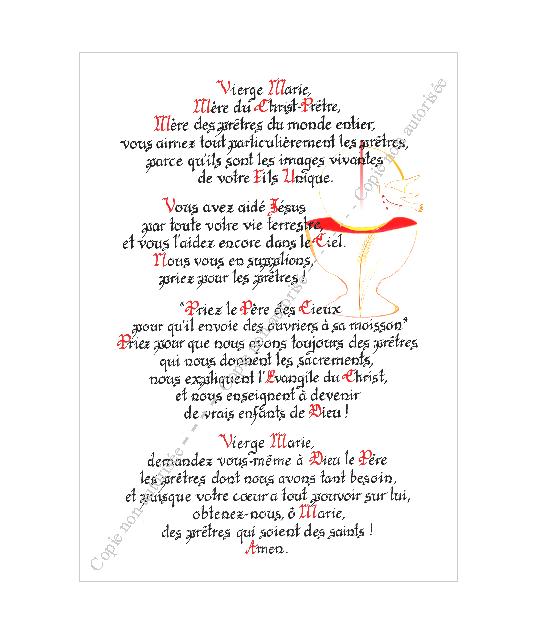 Vierge Marie,
Mère du Christ-Prêtre,
Mère des prêtres du monde entier,
vous aimez tout particulièrement les prêtres,
parce qu'ils sont les images vivantes
de votre Fils Unique.
Vous avez aidé Jésus
par toute votre vie terrestre,
et vous l'aidez encore dans le Ciel.
Nous vous en supplions,
priez pour les prêtres !
"Priez le Père des Cieux
pour qu'il envoie des ouvriers à sa moisson"
Priez pour que nous ayons toujours des prêtres
qui nous donnent les sacrements,
nous expliquent l'Evangile du Christ,
et nous enseignent à devenir
de vrais enfants de Dieu !
Vierge Marie,
demandez vous-même à Dieu le Père
les prêtres dont nous avons tant besoin,
et puisque votre cœur a tout pouvoir sur lui,
obtenez-nous, ô Marie,
des prêtres qui soient des saints !
Amen.
Copie non-autorisée - - - - Copie non-autorisée - - - - Copie non-autorisée